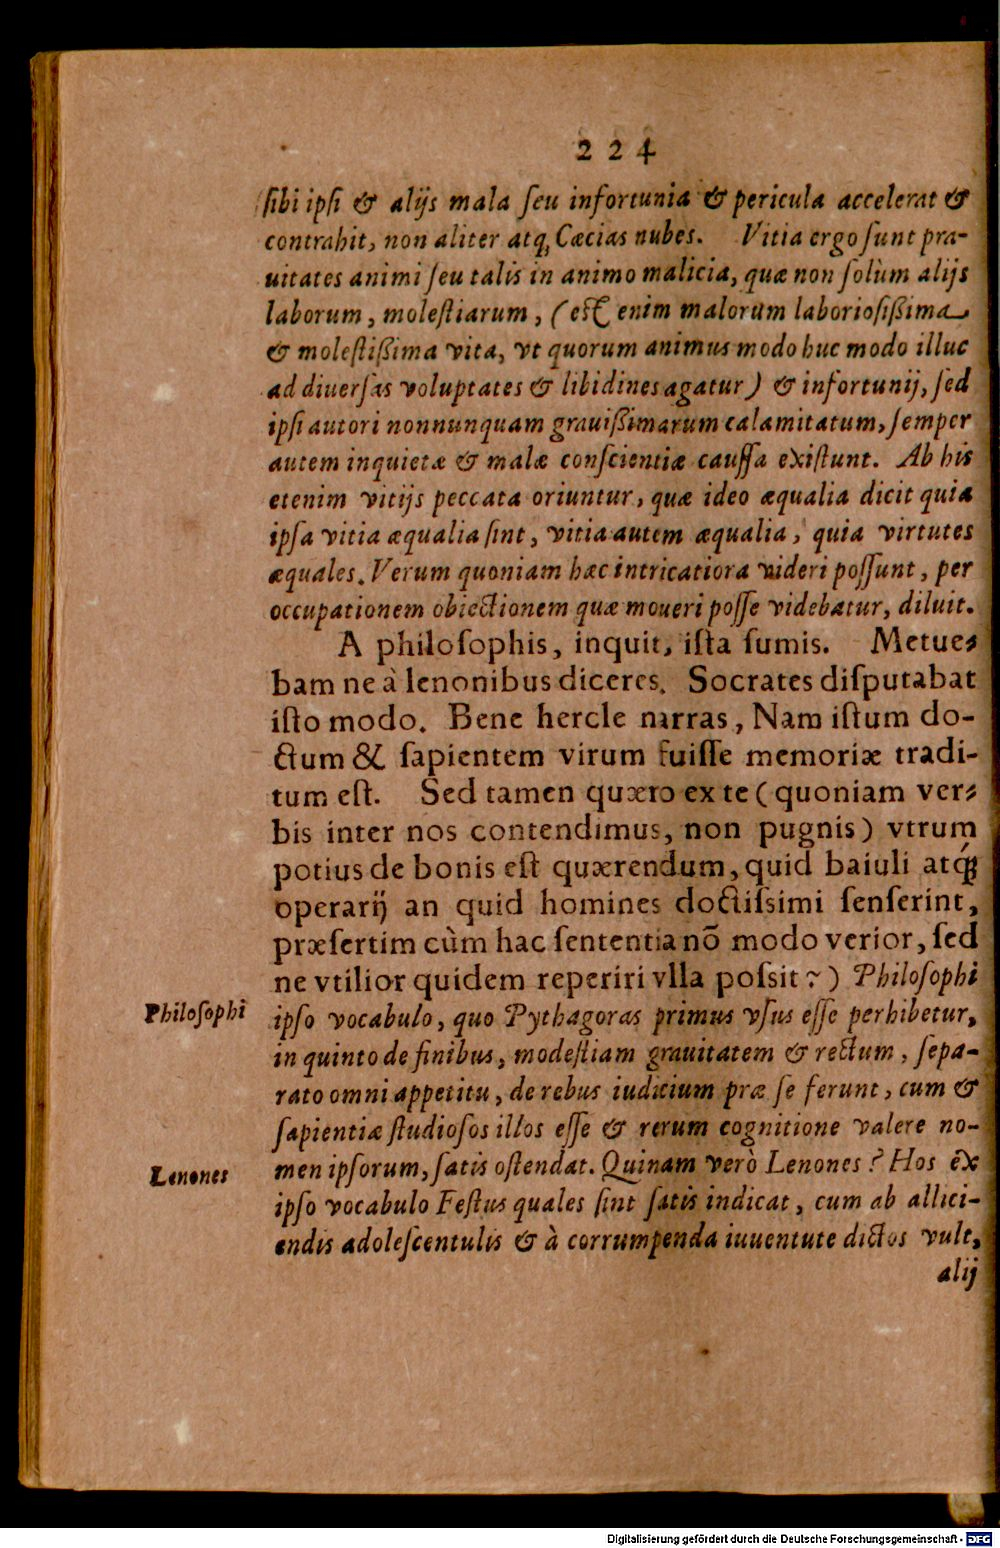 224
ſibi ipſi & alijs mala ſeu infortunia & pericula accelerat &
contrahit, non aliter atq; Cæcias nubes. Vitia ergo ſunt pra-
uitates animi ſeu talis in animo malicia, quæ non ſolùm alijs
laborum, moleſtiarum, (eſt enim malorum laborioſißima
& moleſtißima vita, vt quorum animus modo huc modo illuc
ad diuerſas voluptates & libidines agatur) & infortunij, ſed
ipſi autori nonnunquam grauißimarum calamitatum, ſemper
autem inquietæ & malæ conſcientiæ cauſſa exiſtunt. Ab his
etenim vitijs peccata oriuntur, quæ ideo æqualia dicit quia
ipſa vitia æqualia ſint, vitia autem æqualia, quia virtutes
æquales. Verum quoniam hæc intricatiora videri poſſunt, per
occupationem obiectionem quæ moueri poſſe videbatur, diluit.
A philoſophis, inquit, iſta ſumis. Metue⸗
bam ne à lenonibus diceres. Socrates diſputabat
iſto modo. Bene hercle narras, Nam iſtum do-
ctum & ſapientem virum fuiſſe memoriæ tradi-
tum eſt. Sed tamen quæro ex te (quoniam ver⸗
bis inter nos contendimus, non pugnis) vtrum
potius de bonis eſt quærendum, quid baiuli atq́;
operarij an quid homines doctiſsimi ſenſerint,
præſertim cùm hac ſententia nõ modo verior, ſed
ne vtilior quidem reperiri vlla poſsit?) Philoſophi
Philoſophi
ipſo vocabulo, quo Pythagoras primus vſus eſſe perhibetur,
in quinto de finibus, modeſtiam grauitatem & rectum, ſepa-
rato omni appetitu, de rebus iudicium præ ſe ferunt, cum &
ſapientiæ ſtudioſos illos eſſe & rerum cognitione valere no-
Lenones
men ipſorum, ſatis oſtendat. Quinam verò Lenones? Hos ex
ipſo vocabulo Feſtus quales ſint ſatis indicat, cum ab allici-
endis adoleſcentulis & à corrumpenda iuuentute dictos vult,
alij
Digitalisierung gefördert durch die Deutsche Forschungsgemeinschaft - DFG